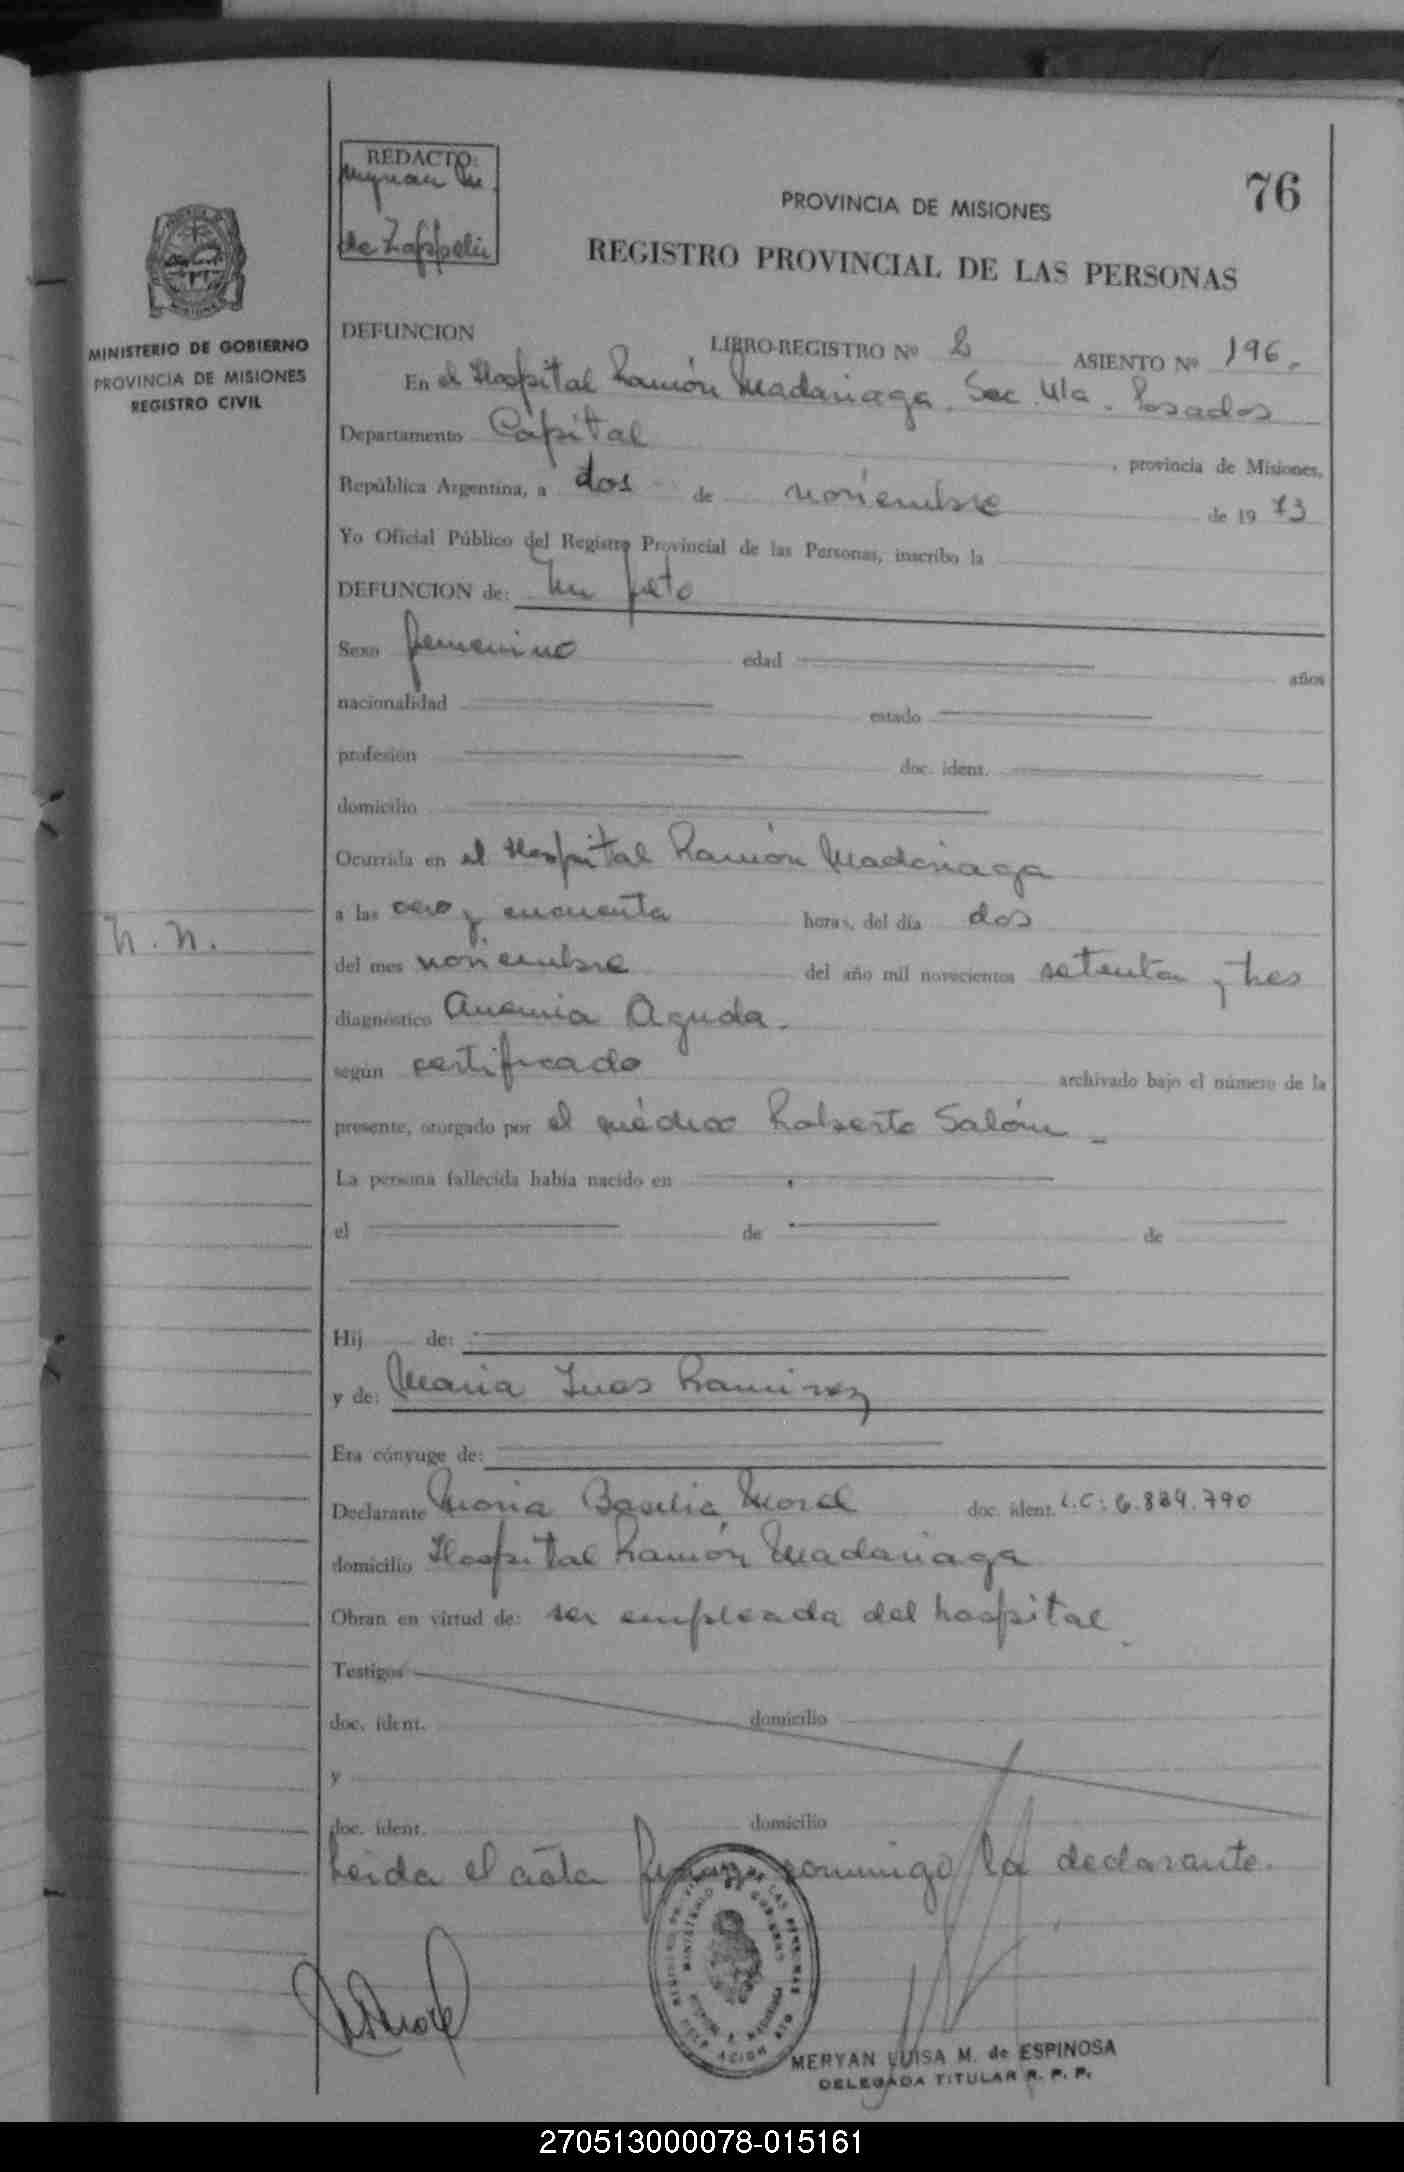 76
REDACTO:
de Zappelin
PROVINCIA DE MISIONES
REGISTRO PROVINCIAL DE LAS PERSONAS
MINISTERIO DE GOBIERNO
PROVINCIA DE MISIONES
REGISTRO CIVIL
DEFUNCION LIBRO-REGISTRO Nº 2 ASIENTO Nº 196.
En el Hospital Ramón Madariaga. Sec. 4ta. Posadas
Departamento Capital, provincia de Misiones,
República Argentina, a dos de noviembre de 1973
Yo Oficial Público del Registro Provincial de las Personas, inscribo la
DEFUNCION de: Un feto
Sexo femenino edad años
nacionalidad estado
profesión doc. ident.
domicilio
Ocurrida en el Hospital Ramón Madariaga
a las cero y cincuenta horas, del día dos
N.N.
del mes noviembre del año mil novecientos setenta y tres
diagnóstico Anemia Aguda.
según certificado archivado bajo el número de la
presente, otorgado por el médico Roberto Salóm
La persona fallecida había nacido en
el de de
Hij de:
y de: Maria Ines Ramirez
Era cónyuge de:
Declarante Maria Basilia Morel doc. ident. L.C: 6.839.790
domicilio Hospital Ramón Madariaga
Obran en virtud de: ser empleada del hospital.
Testigos
doc. ident. domicilio
y
doc. ident. domicilio
Leida el acta firma conmigo la declarante.
MERYAN LUISA M. de ESPINOSA
DELEGADA TITULAR R. P. P.
270513000078-015161